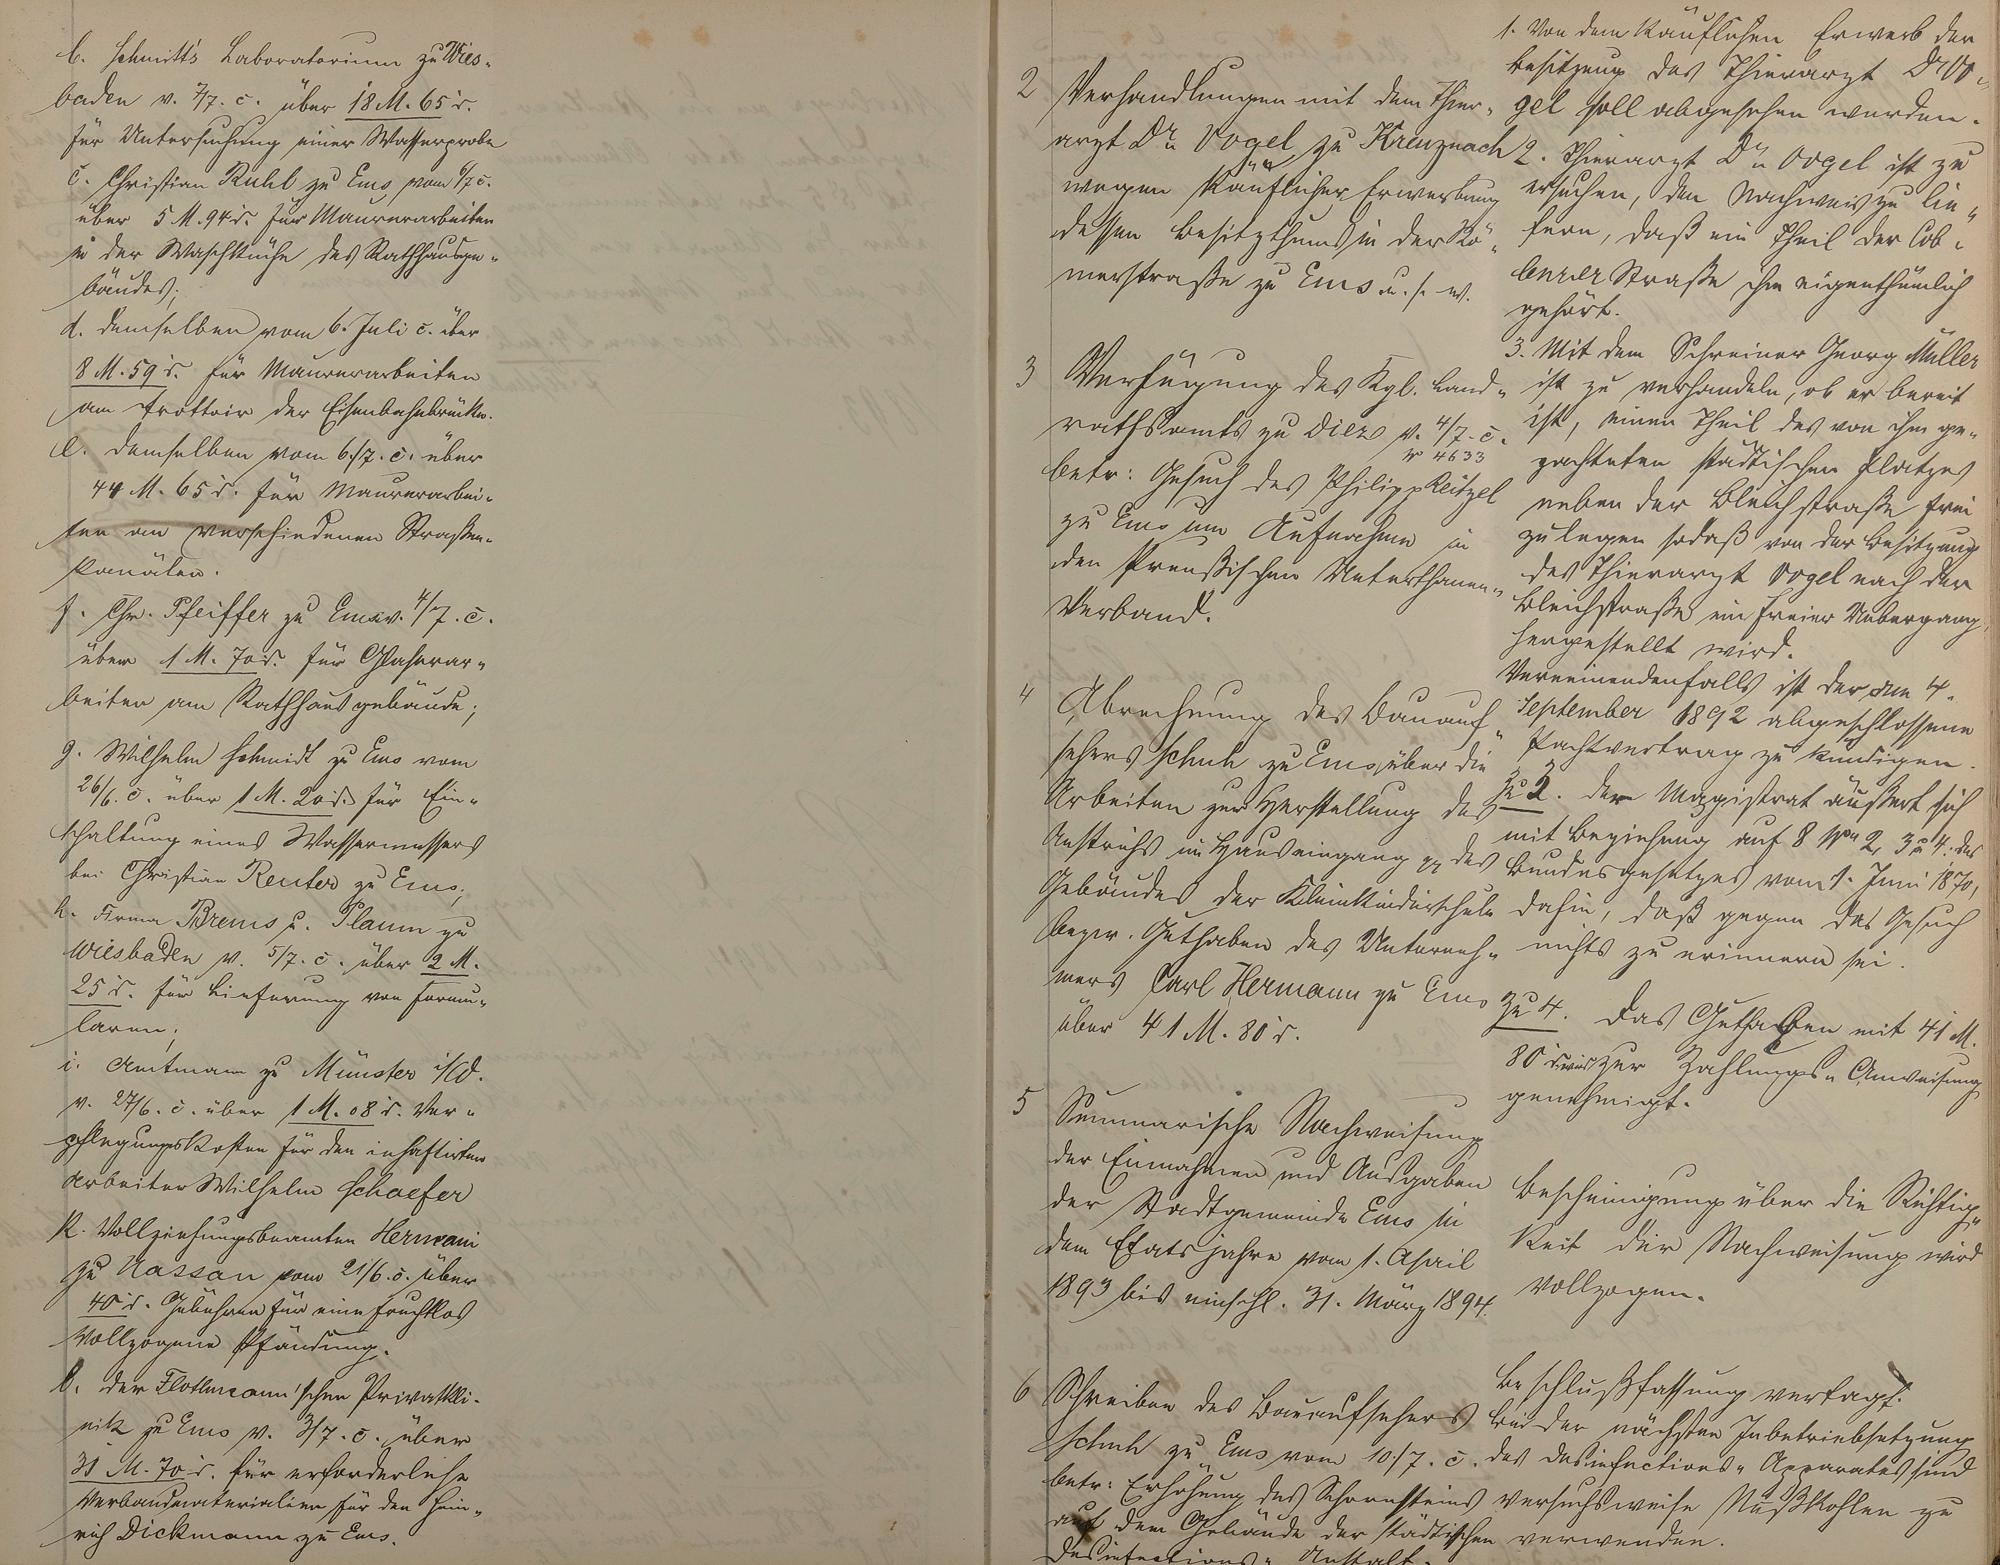 b. Schmitt's Laboratorium zu Wies-
baden v. 7/7. c. über 18 M. 65 d.
für Untersuchung einer Wasserprobe
c. Christian Ruhl zu Ems vom 6/7 c.
über 5 M. 94 d. für Maurerarbeiten
in der Waschküche des Rathhausge-
bäudes;
d. demselben vom 6. Juli c. über
8 M. 59 d. für Maurerarbeiten
am Trottoir der Eisenbahnbrücke.
e. demselben vom 6./7. c. über
44 M. 65 d. für Maurerarbei-
ten an verschiedenen Straßen-
kanälen.
f. Chr. Pfeiffer zu Ems v. 4/7. c.
über 1 M. 70 d. für Glaserar-
beiten am Rathhausgebäude;
g. Wilhelm Schmidt zu Ems vom
26/6. c. über 1 M. 20 d. für Ein-
schaltung eines Wassermessers
bei Christian Reuter zu Ems;
h. Firma Brems u. Plaum zu
Wiesbaden v. 5/7. c. über 2 M.
25 d. für Lieferung von Formu-
laren;
i. Amtmann zu Münster i/W.
v. 27/6. c. über 1 M. 08 d. Ver-
pflegungskosten für den inhaftirten
Arbeiter Wilhelm Schaefer
k. Vollziehungsbeamten Hermani
zu Nassau vom 21/6. c. über
40 d. Gebühren für eine fruchtlos
vollzogene Pfändung.
l. der Flothmann'schen Privatkli-
nik zu Ems v. 3/7. c. über
31 M. 70 d. für erforderliche
Verbandmaterialien für den Hein-
rich Dickmann zu Ems.
2 Verhandlungen mit dem Thier-
arzt Dr. Vogel zu Kreuznach
wegen käuflicher Erwerbung
dessen Besitzthums in der Rö-
merstraße zu Ems u. s. w.
3 Verfügung des Kgl. Land-
rathsamts zu Diez v. 4/7. c.
4633
betr: Gesuch des Philipp Reitzel
zu Ems um Aufnahme in
den Preußischen Unterthanen-
Verband.
4 Abrechnung des Bauauf-
sehers Schuh zu Ems über die
Arbeiten zur Herstellung des
Anstrichs im Hauseingang pp des
Gebäudes der Kleinkinderschule
bezw. Guthaben des Unterneh-
mers Carl Hermann zu Ems
über 41 M. 80 d.
5 Summarische Nachweisung
der Einnahmen und Ausgaben
der Stadtgemeinde Ems in
dem Etatsjahre vom 1. April
1893 bis einschl. 31. März 1894.
6 Schreiben des Bauaufsehers
Schuh zu Ems vom 10/7. c.
betr: Erhöhung des Schornsteins
auf dem Gebäude der städtischen
Desinfections-Anstalt.
1. Von dem käuflichen Erwerb der
Besitzung des Thierarzt Dr. Vo-
gel soll abgesehen werden.
2. Thierarzt Dr. Vogel ist zu
ersuchen, den Nachweis zu lie-
fern, daß ein Theil der Cob-
lenzer Straße ihm eigenthümlich
gehört.
3. Mit dem Schreiner Georg Müller
ist zu verhandeln, ob er bereit
ist, einen Theil des von ihm ge-
pachteten städtischen Platzes
neben der Bleichstraße frei
zu legen sodaß von der Besitzung
des Thierarzt Vogel nach der
Bleichstraße ein freier Uebergang
hergestellt wird.
Verneinendenfalls ist der am 4.
September 1892 abgeschlossene
Pachtvertrag zu kündigen.
Zu 3. der Magistrat äußert sich
mit Beziehung auf § 8 2, 3 u 4. des
Bundesgesetzes vom 1. Juni 1870,
dahin, daß gegen das Gesuch
nichts zu erinnern sei.
Zu 4. Das Guthaben mit 41 M.
80 d. wird zur Zahlungs-Anweisung
genehmigt.
Bescheinigung über die Richtig-
keit der Nachweisung wird
vollzogen.
Beschlußfassung vertagt.
Bei der nächsten Inbetriebsetzung
des Desinfections-Apparates sind
versuchsweise Nußkohlen zu
verwenden.